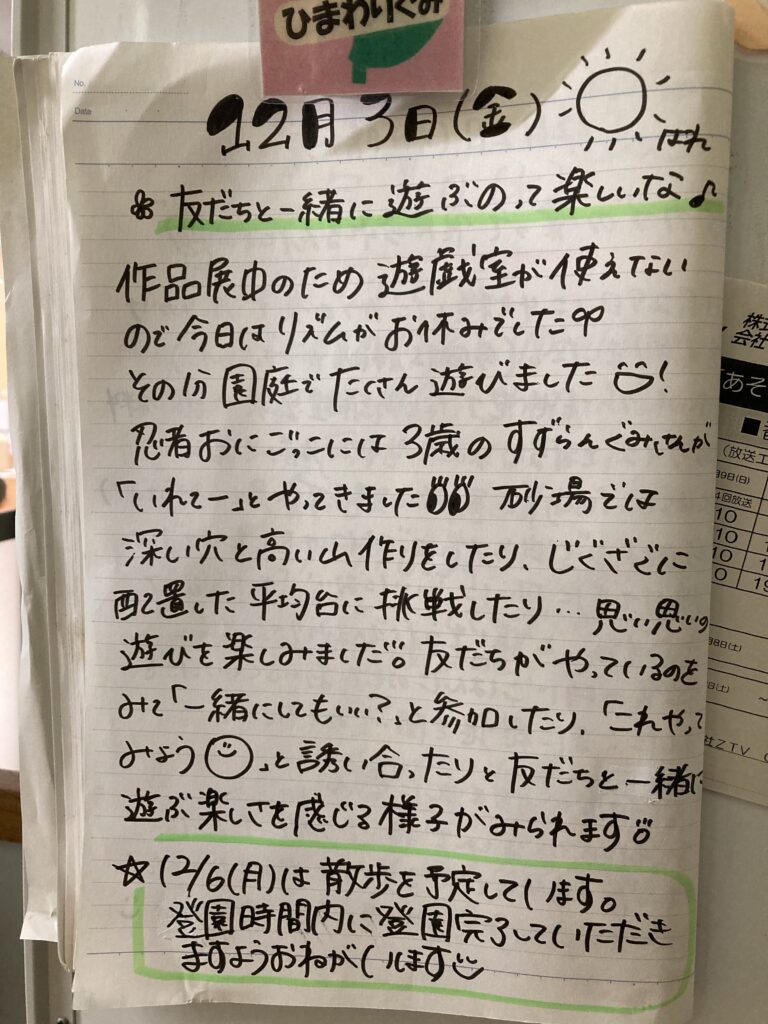 ひまわりぐみ
No.
Date
12月3日(金)
はれ
友だちと一緒に遊ぶのって楽しいな♪
作品展中のため遊戯室が使えない
ので今日はリズムがお休みでした
その分園庭でたくさん遊びました!
忍者おにごっこには3歳のすずらんぐみさんが
「いれてー」とやってきました 砂場では
深い穴と高い山作りをしたり、じぐざぐに
配置した平均台に挑戦したり…思い思いの
遊びを楽しみました。友だちがやっているのを
みて「一緒にしてもいい?」と参加したり、「これやって
みよう」と誘い合ったりと友だちと一緒に
遊ぶ楽しさを感じる様子がみられます
☆12/6(月)は散歩を予定しています。
登園時間内に登園完了していただき
ますようおねがいします
株式
会社
あそ
(放送工
9日(日)
4回放送
10
10
10
0
1
19
8日(土)
(土)
~
社ZTV